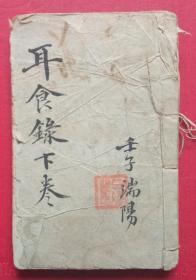 耳食錄下卷
壬子端陽